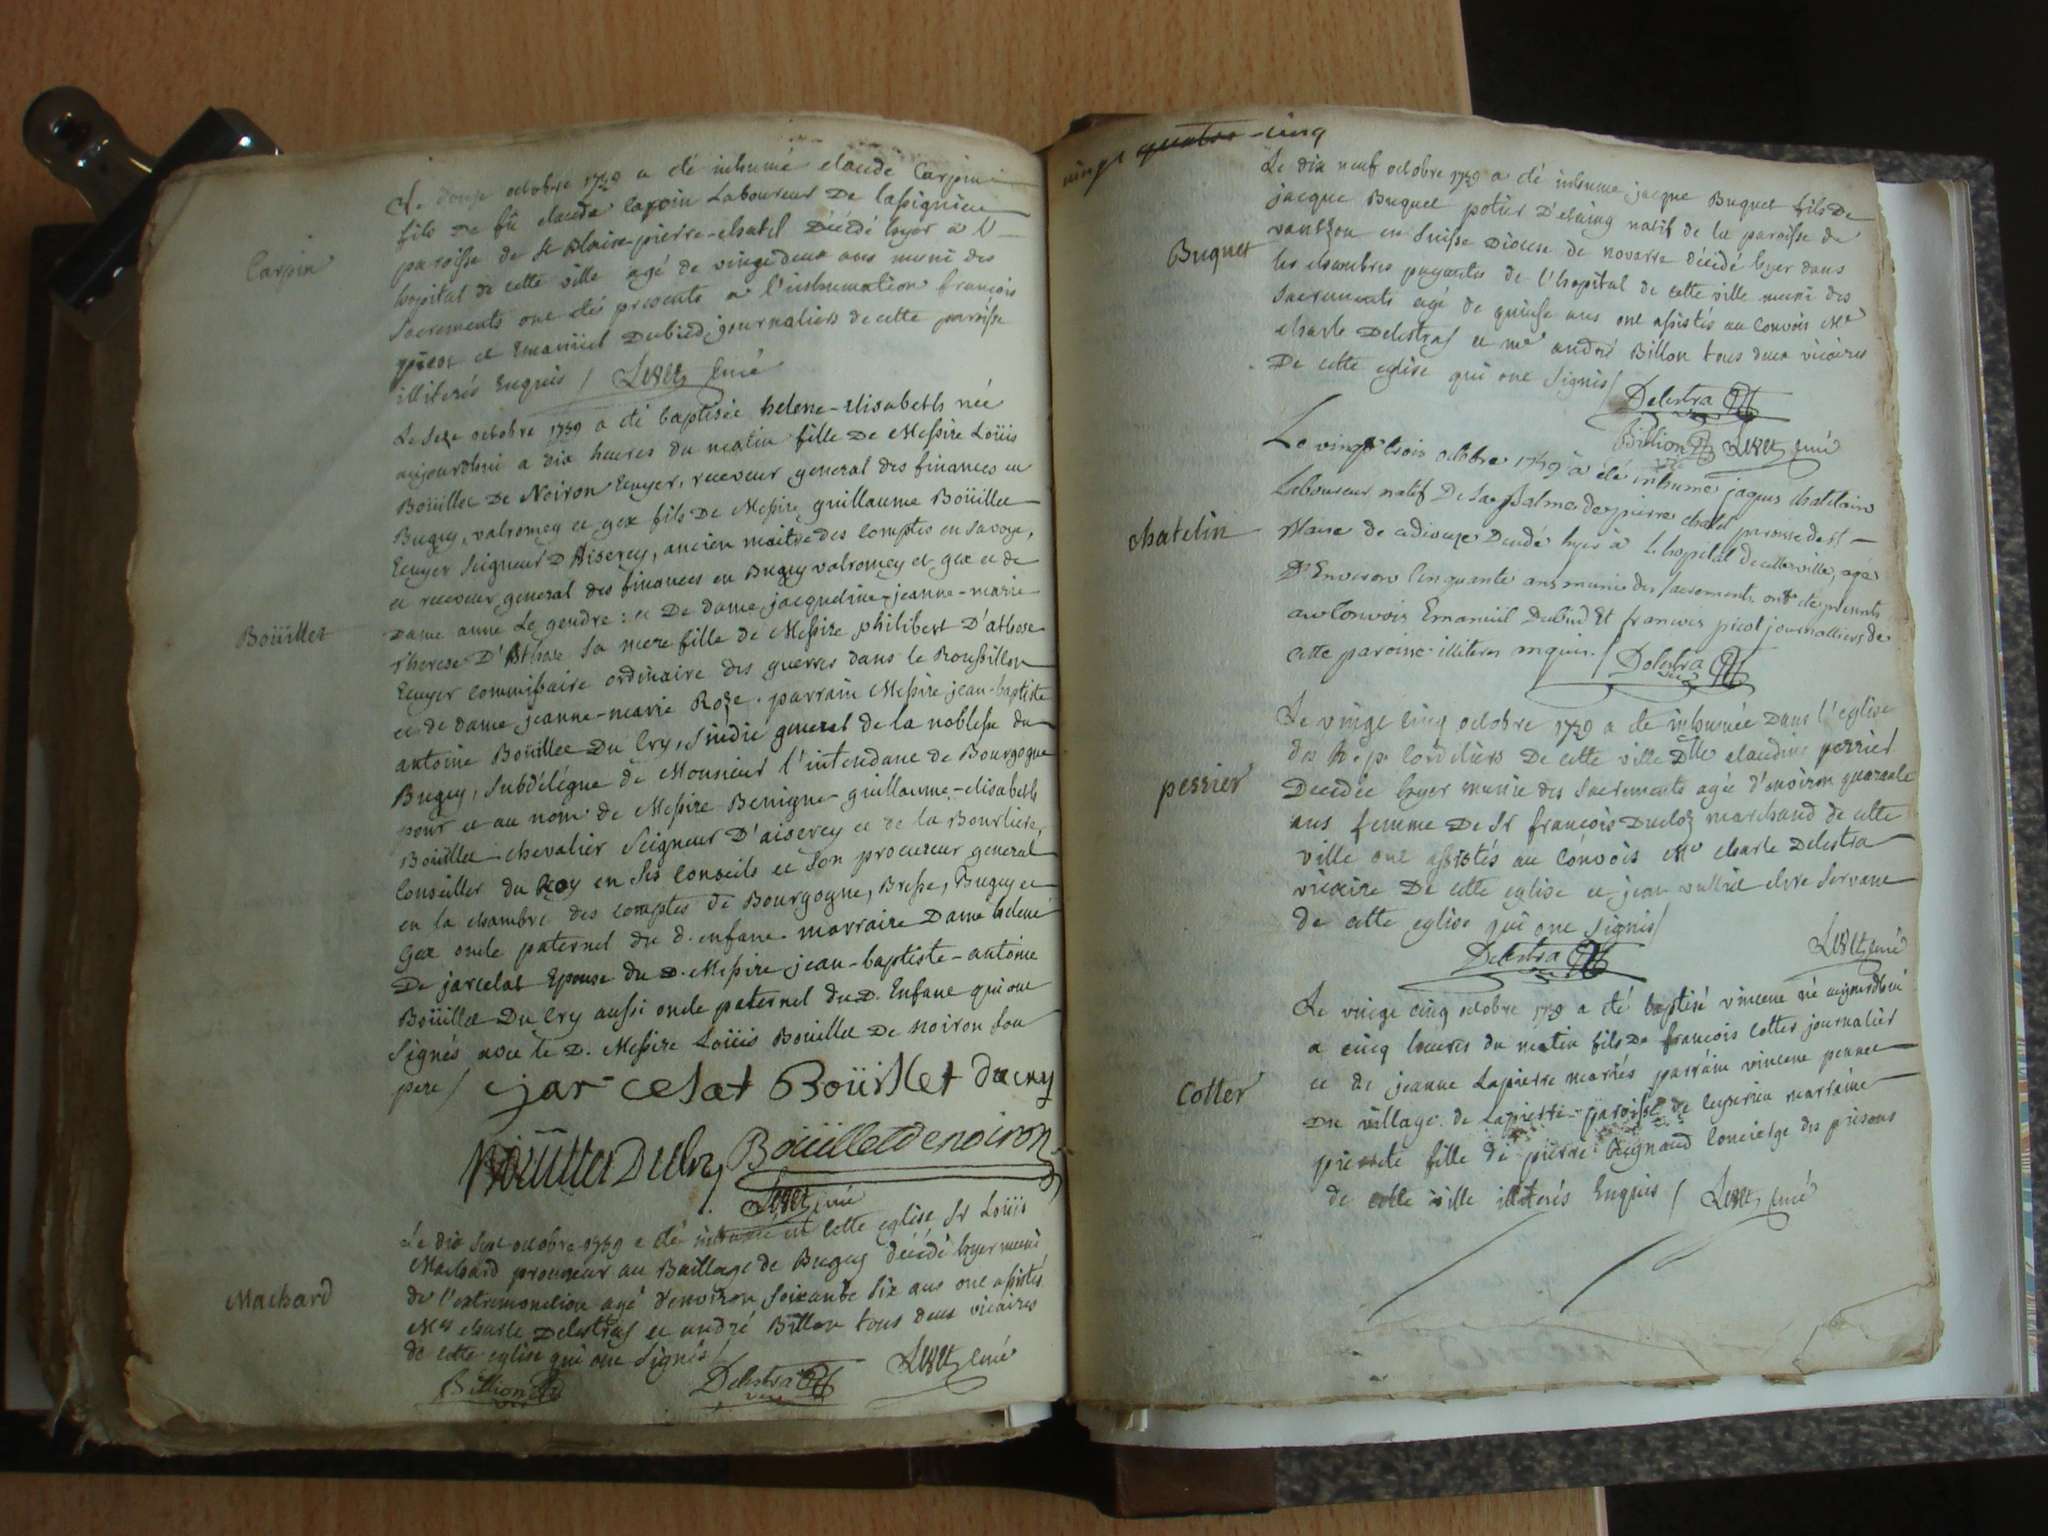 Carpin
Le douze octobre 1759 a eté inhumé claude Carpin
fils de fû claude Carpin Laboureur De
paroisse de St Blaise-pierre-chatel Décédé hyer a l'
hopital de cette ville agé de vingt deux ans muni des
Sacrements ont étés presents a l'inhumation françois
picot et Emanuel Dubied journaliers de cette paroisse
illiterés Enquis / curé
Boüillet
Le Seze octobre 1759 a été baptisée helene-elisabeth née
aujourdhui a dix heures du matin fille De Messire Loüis
Boüillet De Noiron Ecuyer, receveur general des finances en
Bugey, valromey et gex fils De Messire guillaume Boüillet
Ecuyer Seigneur D'Aiserey, ancien maitre des comptes en Savoye,
et receveur general des finances en Bugey valromey et gex et de
Dame anne Le gendre : et De dame jacqueline-jeanne-marie
therese D'Athose Sa mere fille de Messire philibert D'athose
Ecuyer commissaire ordinaire des guerres dans le Roussillon
et de dame jeanne-marie Roze. parrain Messire jean-baptiste
antoine Boüillet Du Cry, Sindic general de la noblesse du
Bugey, Subdélégué de Monsieur l'intendant de Bourgogne
pour et au nom de Messire Benigne guillaume-elisabeth
Boüillet chevalier Seigneur D'aiserey et de la Bourliere,
Conseiller du Roy en Ses Conseils et Son procureur general
en la chambre des comptes de Bourgogne, Bresse, Bugey et
Gex oncle paternel du d. enfant. marraine Dame helene
De jarcelat Epouse du D. Messire jean-baptiste-antoine
Boüillet Du Cry aussi oncle paternel du D. Enfant qui ont
Signés avec le D. Messire Loüis Bouillet De noiron Son
pere / jarcelat Boüillet ducry
Boüillet Ducry Boüillet de noiron
curé
Machard
Le dix Sept octobre 1759 a été inhumé en cette eglise Sr Loüis
Machard procureur au Baillage de Bugey décédé hyer muni
de l'extremonction agé d'environ Soixante Six ans ont assistés
Mrs charle Delestras et andré Billon tous deux vicaires
de cette eglise qui ont Signés /
Billion Delestra curé
vingt quatre-cinq
Buquet
Le dix neuf octobre 1759 a été inhumé jacque Buquet fils De
jacque Buquet potier D'etaing natif de la paroisse de
en Suisse Diocese de novarre décédé hyer dans
les chambres payantes de l'hopital de cette ville muni des
Sacrements agé de quinse ans ont assistés au Convois Mr
charle Delestras et mr andré Billon tous deux vicaires
De cette eglise qui ont Signés /
Delestra
Billion curé
chatelin
Le vingt trois octobre 1759 a été inhumé jaques chatelain
Laboureur natif De de pierre chatel paroisse de St
Blaise de Décédé hyer à l'hopital de cette ville, agé
D'Environ Cinquante ans munis des Sacrements ont été presents
au Convois Emanuel Dubied Et francois picot journalliers de
cette paroisse illiteres enquis. / Delestra
perrier
Le vingt cinq octobre 1759 a été inhumée Dans l'eglise
des R. p. Cordeliers De cette ville Dlle claudine perrier
Decedée hyer munie des Sacrements agée d'environ quarante
ans femme De Sr françois Ducloz marchand de cette
ville ont assistés au Convois Mr charle Delestra
vicaire De cette eglise et jean clerc Servant
de cette eglise qui ont Signés /
Delestra curé
Cotter
Le vingt cinq octobre 1759 a été baptisé vincent né aujourdhui
a cinq heures du matin fils De françois Cotter journalier
et de jeanne Lapierre mariés parrain vincent pennet
Du village de Lapierre paroisse de marraine
fille de pierre Concierge des prisons
de cette ville illiterés Enquis / curé